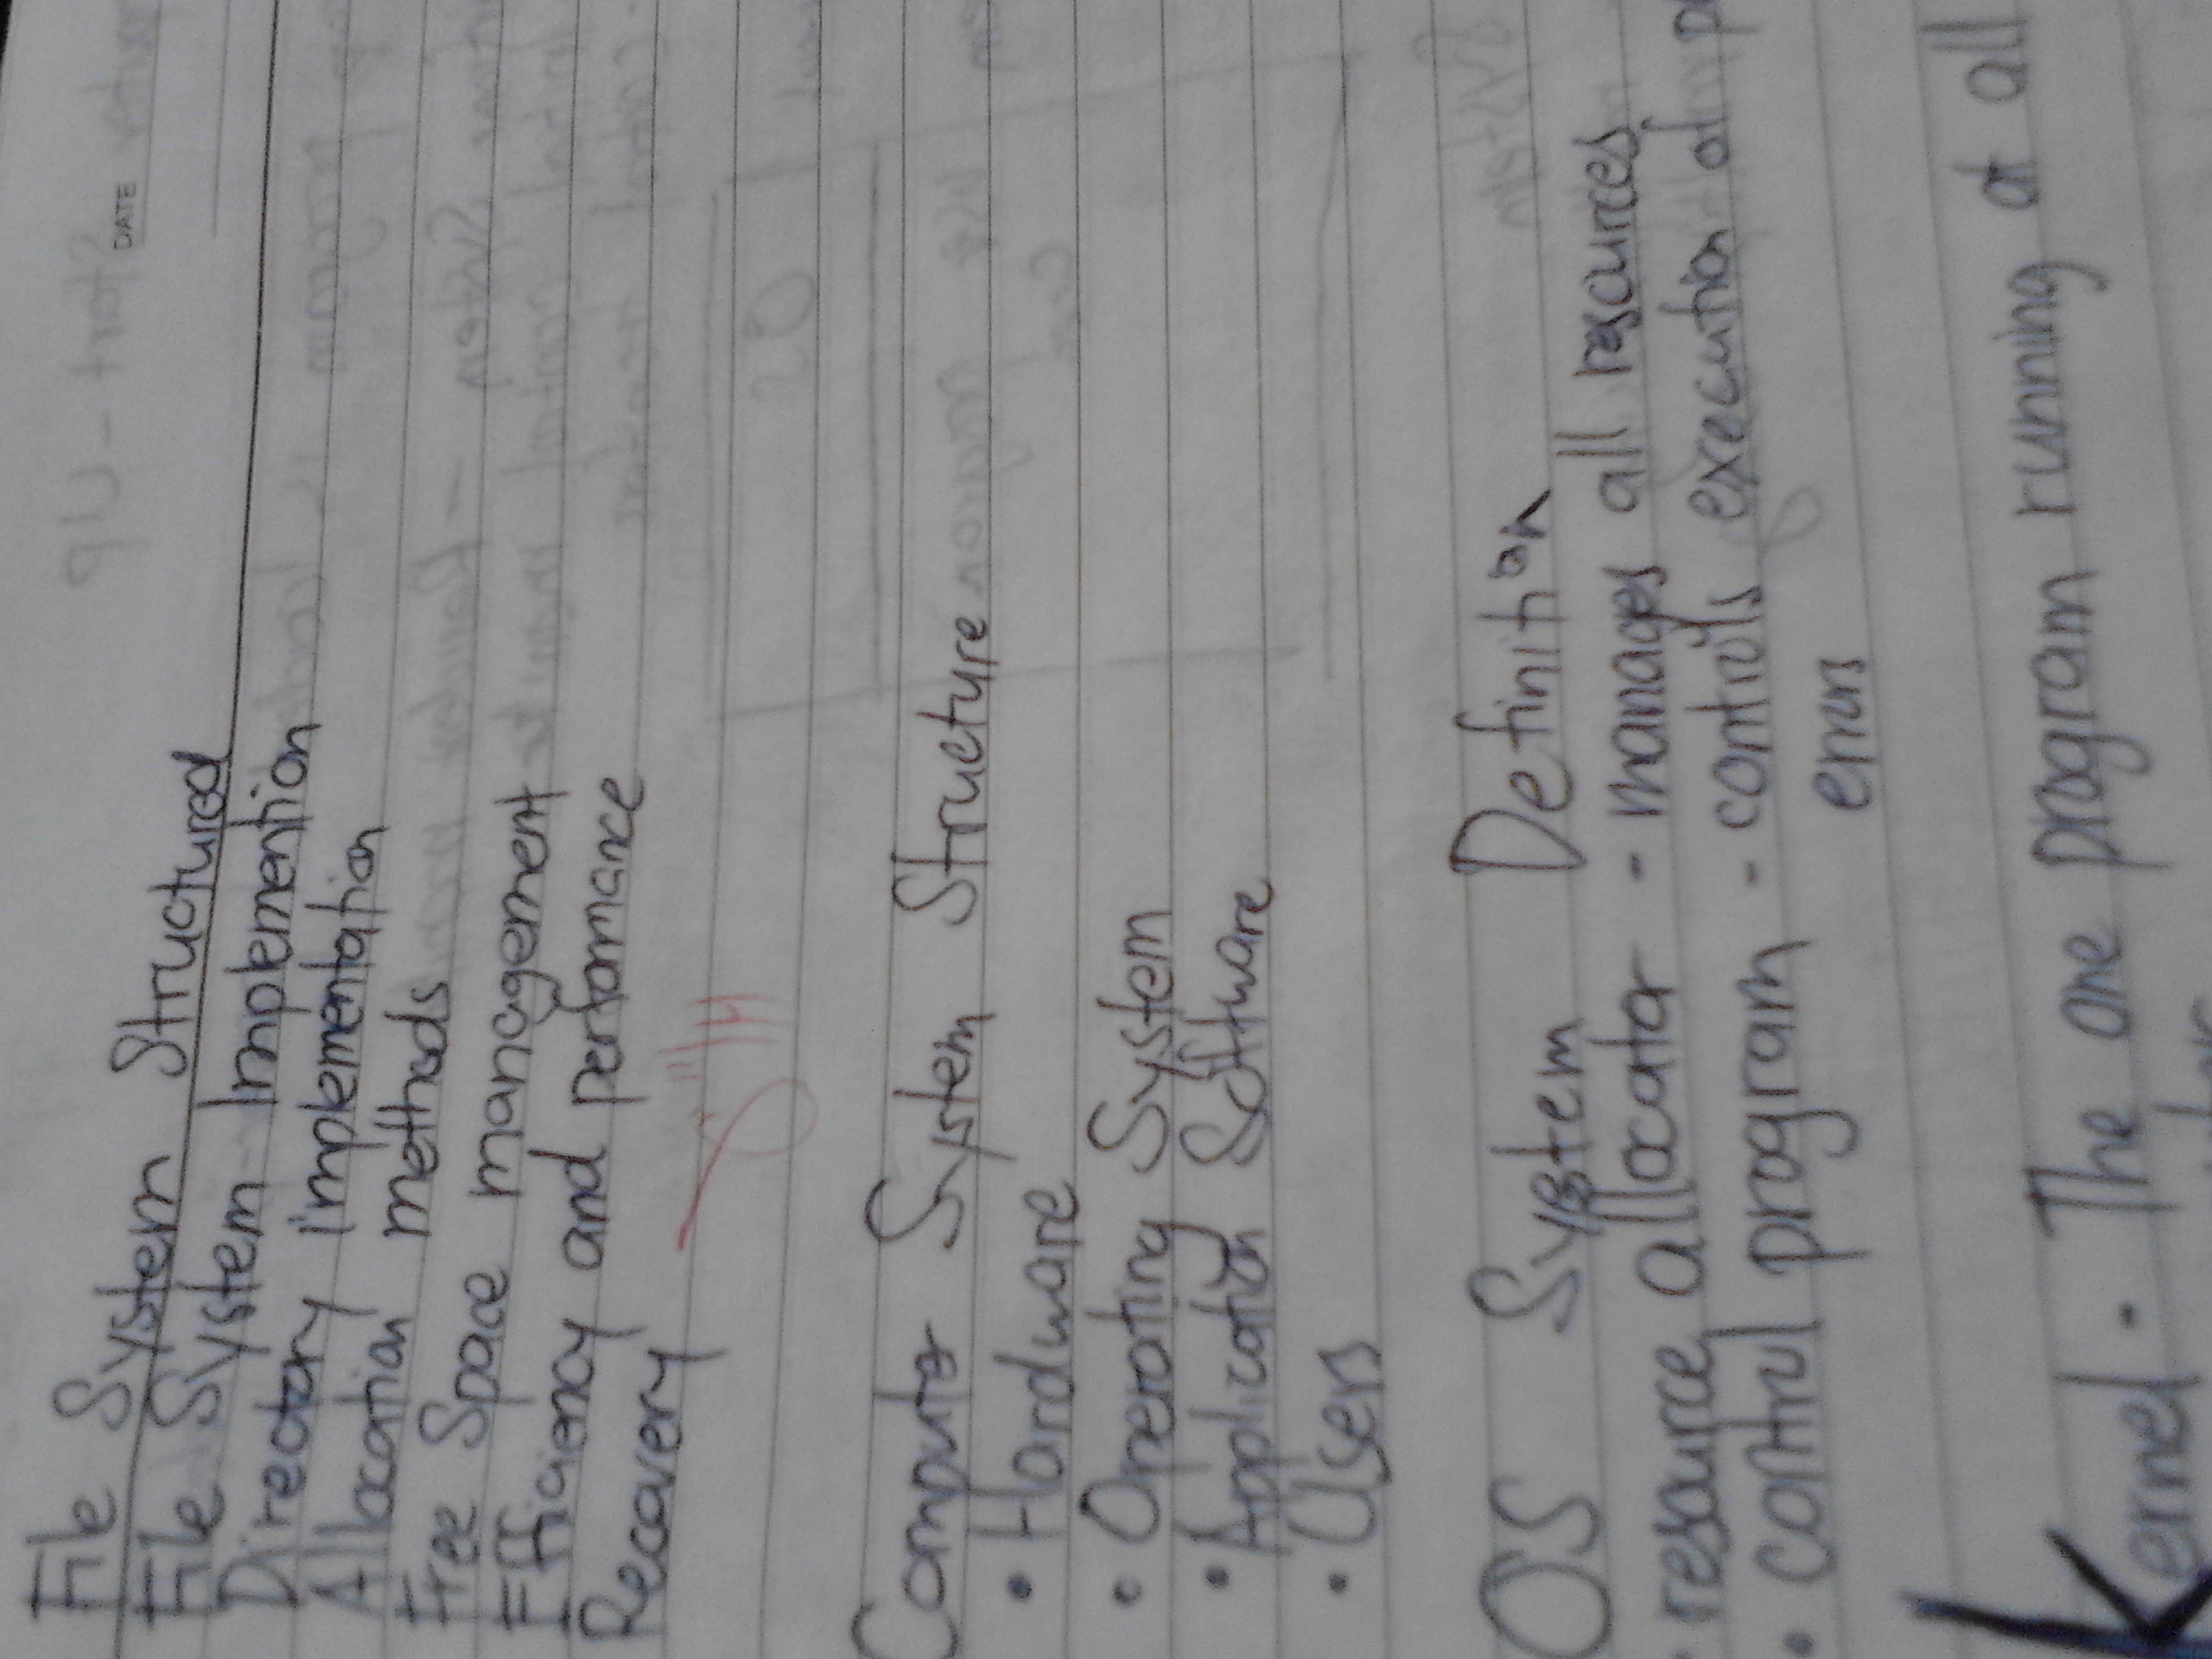 DATE
File System Structured
File System Implemention
Directory implementation
Allocation methods
Free Space management
Efficiency and performance
Recovery
Computer System Structure
• Hardware
• Operating System
• Application Software
• Users
OS System Definition
• resource allocator - manages all resources
• control program - controls execution of
errors
Kernel - The one program running at all